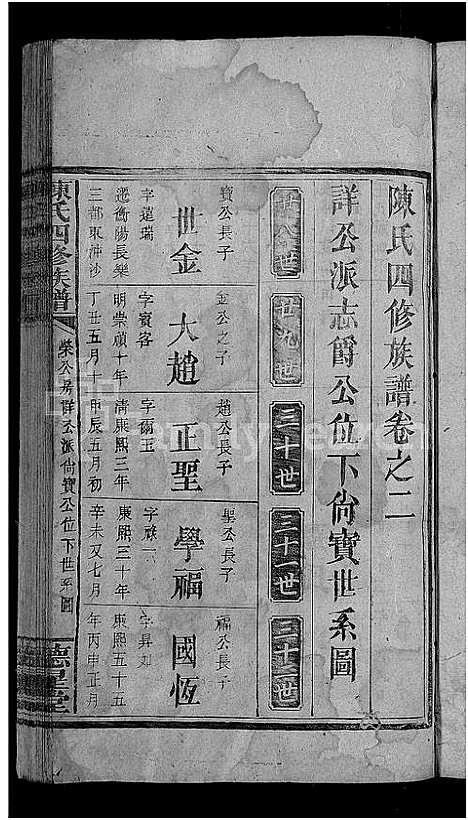 陳氏四修族譜卷之二
詳公派志爵公位下尙寶世系圖
廿八世
廿九世
三十世
三十一世
三十二世
寶公長子
世金
字遠瑞
遷衡陽長樂
三都東沖沙
金公之子
大趙
字賓客
明崇禎十年
丁丑五月十
趙公長子
正聖
字爾玉
清康熙三年
甲辰五月初
聖公長子
學福
字祿一
康熙三十年
辛未又七月
福公長子
國恆
字昇如
康熙五十五
年丙申正月
陳氏四修族譜
榮公房詳公派尙寶公位下世系圖
德星堂